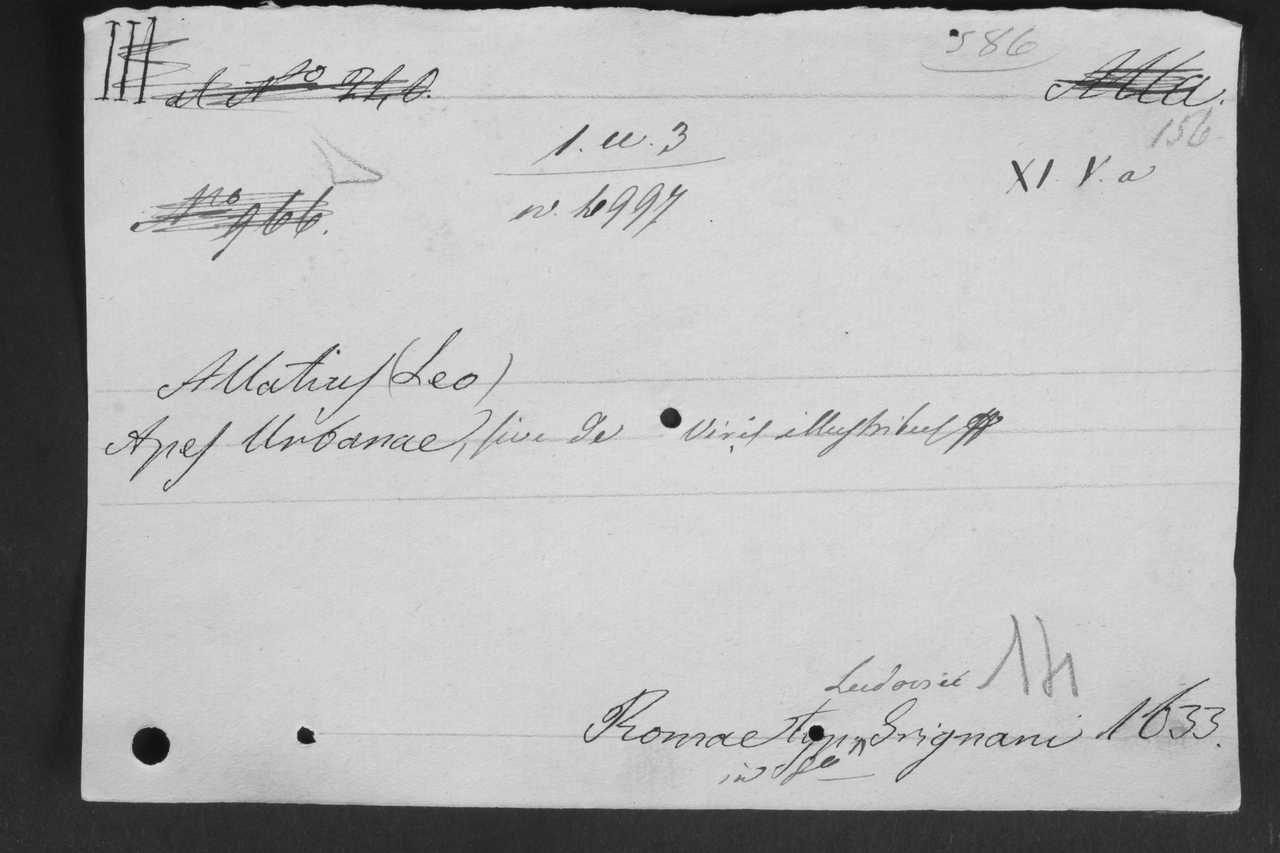 III
586
al No 24,8.
Alla.
156
1. cc. 3
XI. V. a
No 966.
n. 4997
Allatius (Leo)
Apes Urbanae, sive de Viris illustribus
14
Ludovici
Romae typ. Grignani 1633.
in 8o